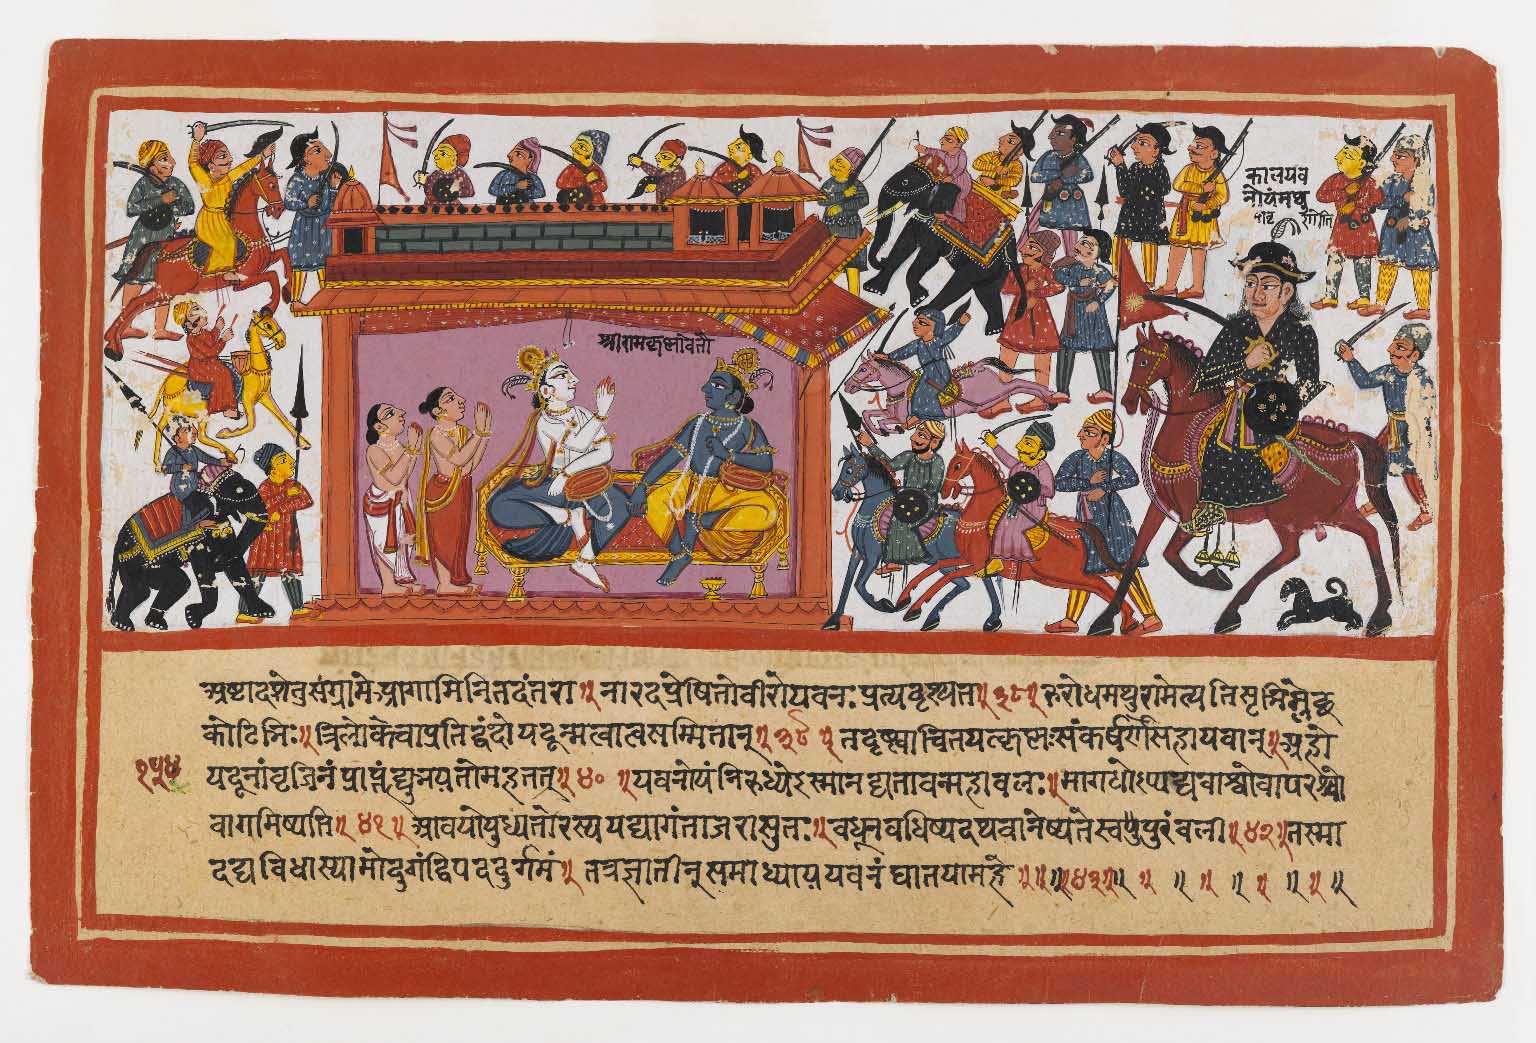 कालयव
नोयंमथु
रांगेति
श्रीरामकृष्णावेतौ
अष्टादशेतुसंग्रामेआगामिनितदंतरा॥नारदप्रेषितोवीरोयवनःप्रत्यदृश्यत॥३८॥रुरोधमथुरामेत्यतिसृभिर्म्लेछ
कोटिभिः॥त्रिलोकेचाप्रतिद्वंद्वोयदून्मत्वात्मसम्मितान्॥३९॥तंदृष्ट्वाचिंतयत्कृष्णःसंकर्षणसहायवान्॥अहो
१५४
यदूनांवृजिनंप्राप्तंह्युभयतोमहत्तत्॥४०॥यवनोयंनिरुध्येऽस्मानद्यतावन्महाबलः॥मागधोऽप्यद्यवाश्वोवापरश्वो
वागमिष्यति॥४१॥आवयोयुध्यतोरस्ययद्यागंताजरासुतः॥बंधून्वधिष्यत्यथवानेष्यतेस्वपुरंबली॥४२॥तस्मा
दद्यविधास्यामोदुर्गंद्विपददुर्गमं॥तत्रज्ञातीन्समाध्याययवनंघातयामहे॥॥॥४३॥॥॥॥॥॥॥॥॥